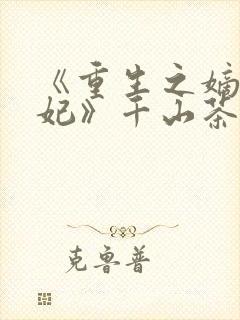 《重生之嫡
妃》千山茶
克鲁普